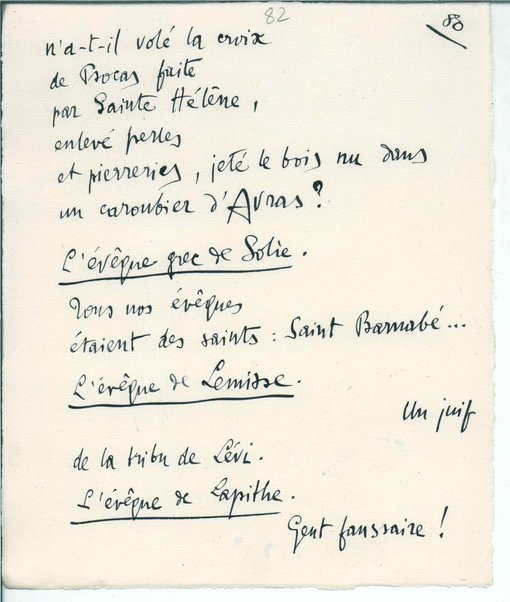 82
80
n'a-t-il volé la croix
de Psocas faite
par Sainte Hélène,
enlevé perles
et pierreries, jeté le bois nu dans
un caroubier d'Avras?
L'évêque grec de Solie.
Tous nos évêques
étaient des saints : Saint Barnabé...
L'évêque de Lemisse.
Un juif
de la tribu de Lévi.
L'évêque de Lapithe.
Gent faussaire !